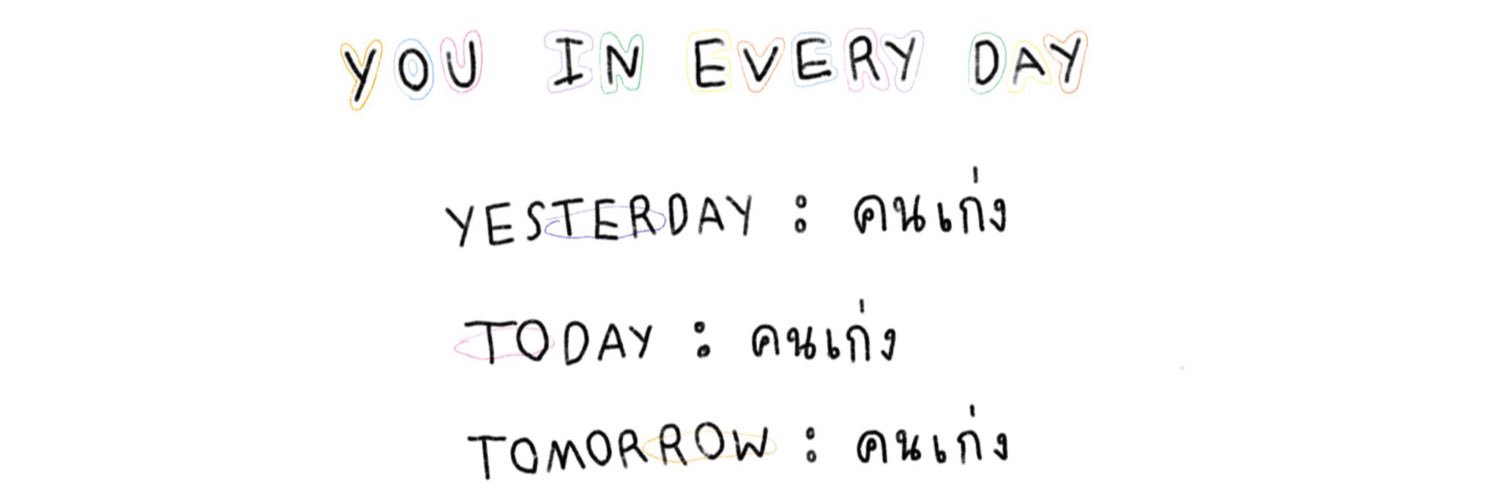 YOU IN EVERY DAY
YESTERDAY : คนเก่ง
TODAY : คนเก่ง
TOMORROW : คนเก่ง